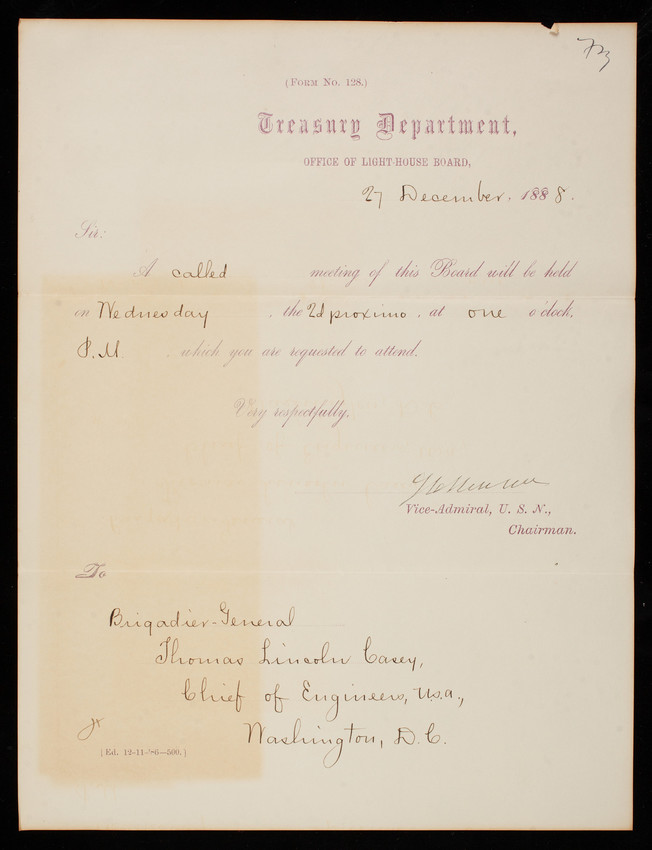 (FORM No. 128.)
Treasury Department,
OFFICE OF LIGHT-HOUSE BOARD,
27 December, 1888.
Sir:
A called meeting of this Board will be held
on Wednesday, the 2d proximo, at one o'clock,
P.M., which you are requested to attend.
Very respectfully,
Vice-Admiral, U. S. N.,
Chairman.
To
Brigadier-General
Thomas Lincoln Casey,
Chief of Engineers, U.S.A.,
Washington, D.C.
(Ed. 12-11-'86—500.)